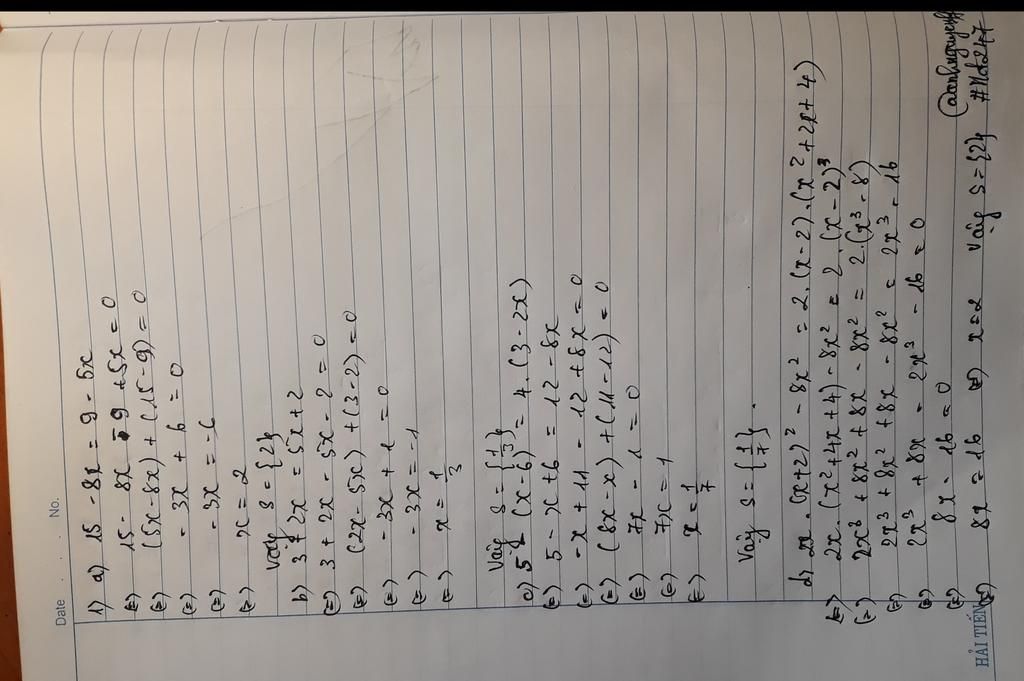 Date No.
1) a) 15 - 8x = 9 - 5x
(=) 15 - 8x - 9 + 5x = 0
(=) (5x - 8x) + (15 - 9) = 0
(=) - 3x + 6 = 0
(=) - 3x = -6
(=) x = 2
Vậy S = {2}
b) 3 + 2x = 5x + 2
(=) 3 + 2x - 5x - 2 = 0
(=) (2x - 5x) + (3 - 2) = 0
(=) - 3x + 1 = 0
(=) - 3x = -1
(=) x = 1/3
Vậy S = {1/3}
c) 5 - (x - 6) = 4.(3 - 2x)
(=) 5 - x + 6 = 12 - 8x
(=) - x + 11 - 12 + 8x = 0
(=) (8x - x) + (11 - 12) = 0
(=) 7x - 1 = 0
(=) 7x = 1
(=) x = 1/7
Vậy S = {1/7}.
d) 2x.(x+2)² - 8x² = 2.(x-2).(x²+2x+4)
(=) 2x.(x²+4x+4) - 8x² = 2.(x-2)³
(=) 2x³ + 8x² + 8x - 8x² = 2.(x³ - 8)
(=) 2x³ + 8x² + 8x - 8x² = 2x³ - 16
(=) 2x³ + 8x - 2x³ - 16 = 0
(=) 8x - 16 = 0
(=) 8x = 16 (=) x = 2 Vậy S = {2}
HẢI TIẾN